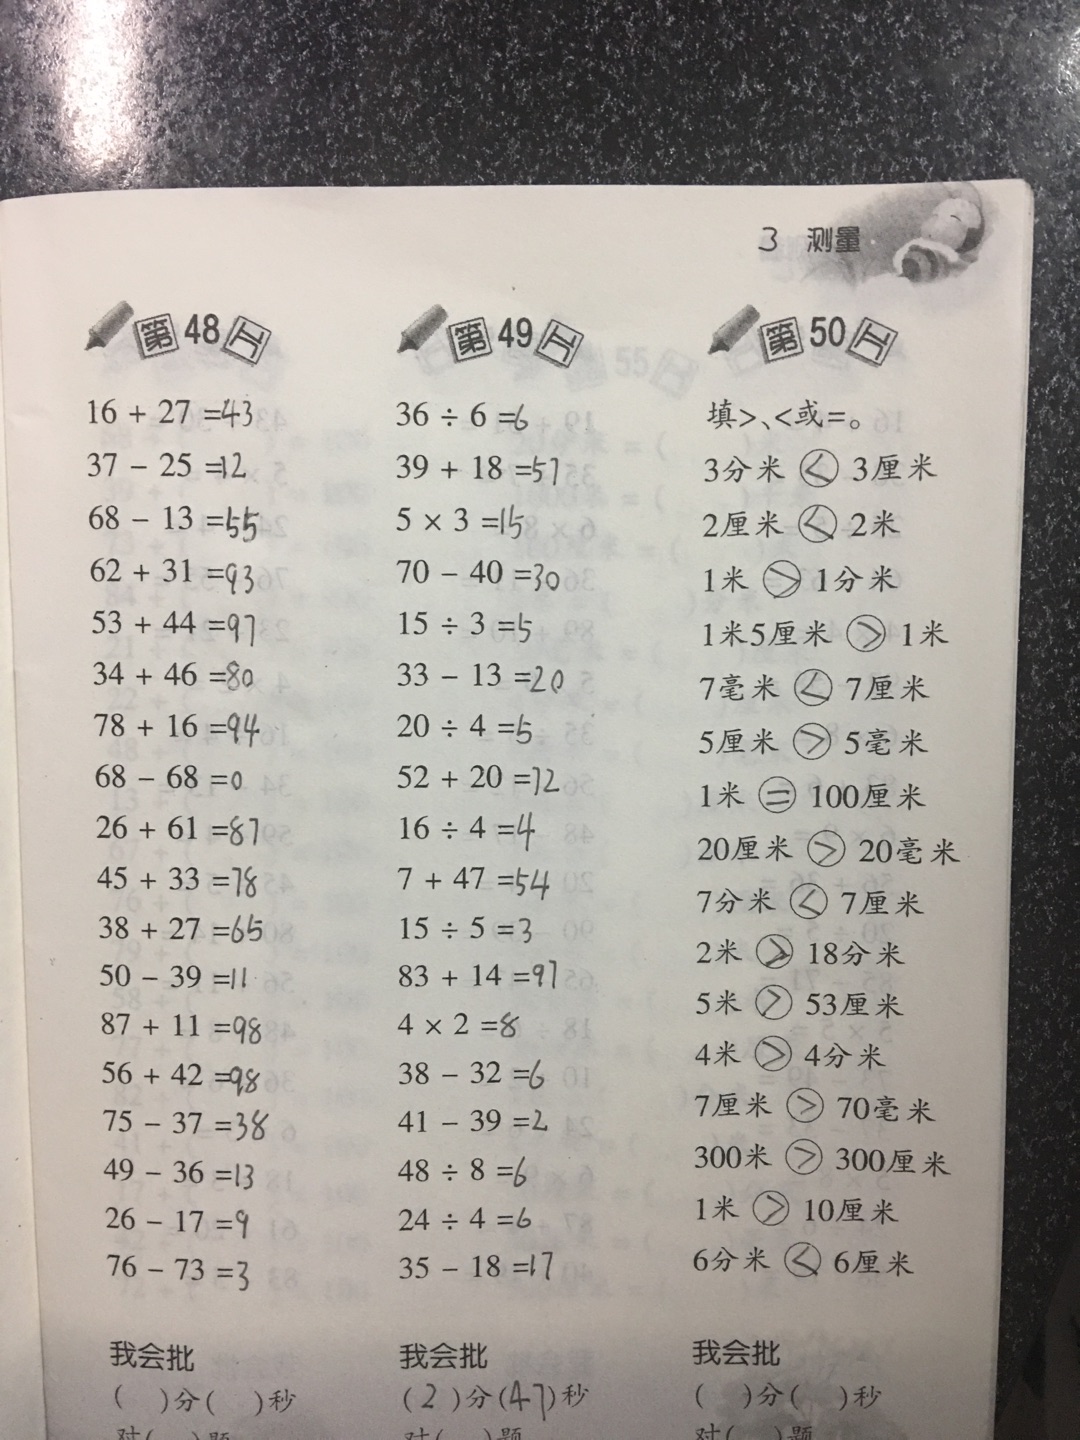 3 测量
第48工
16 + 27 =43
37 − 25 =12
68 − 13 =55
62 + 31 =93
53 + 44 =97
34 + 46 =80
78 + 16 =94
68 − 68 =0
26 + 61 =87
45 + 33 =78
38 + 27 =65
50 − 39 =11
87 + 11 =98
56 + 42 =98
75 − 37 =38
49 − 36 =13
26 − 17 =9
76 − 73 =3
我会批
( )分( )秒
对( )题
第49工
36 ÷ 6 =6
39 + 18 =57
5 × 3 =15
70 − 40 =30
15 ÷ 3 =5
33 − 13 =20
20 ÷ 4 =5
52 + 20 =72
16 ÷ 4 =4
7 + 47 =54
15 ÷ 5 =3
83 + 14 =97
4 × 2 =8
38 − 32 =6
41 − 39 =2
48 ÷ 8 =6
24 ÷ 4 =6
35 − 18 =17
我会批
(2)分(47)秒
对( )题
第50工
填>、<或=。
3分米 < 3厘米
2厘米 < 2米
1米 > 1分米
1米5厘米 > 1米
7毫米 < 7厘米
5厘米 > 5毫米
1米 = 100厘米
20厘米 > 20毫米
7分米 < 7厘米
2米 > 18分米
5米 > 53厘米
4米 > 4分米
7厘米 > 70毫米
300米 > 300厘米
1米 > 10厘米
6分米 < 6厘米
我会批
( )分( )秒
对( )题